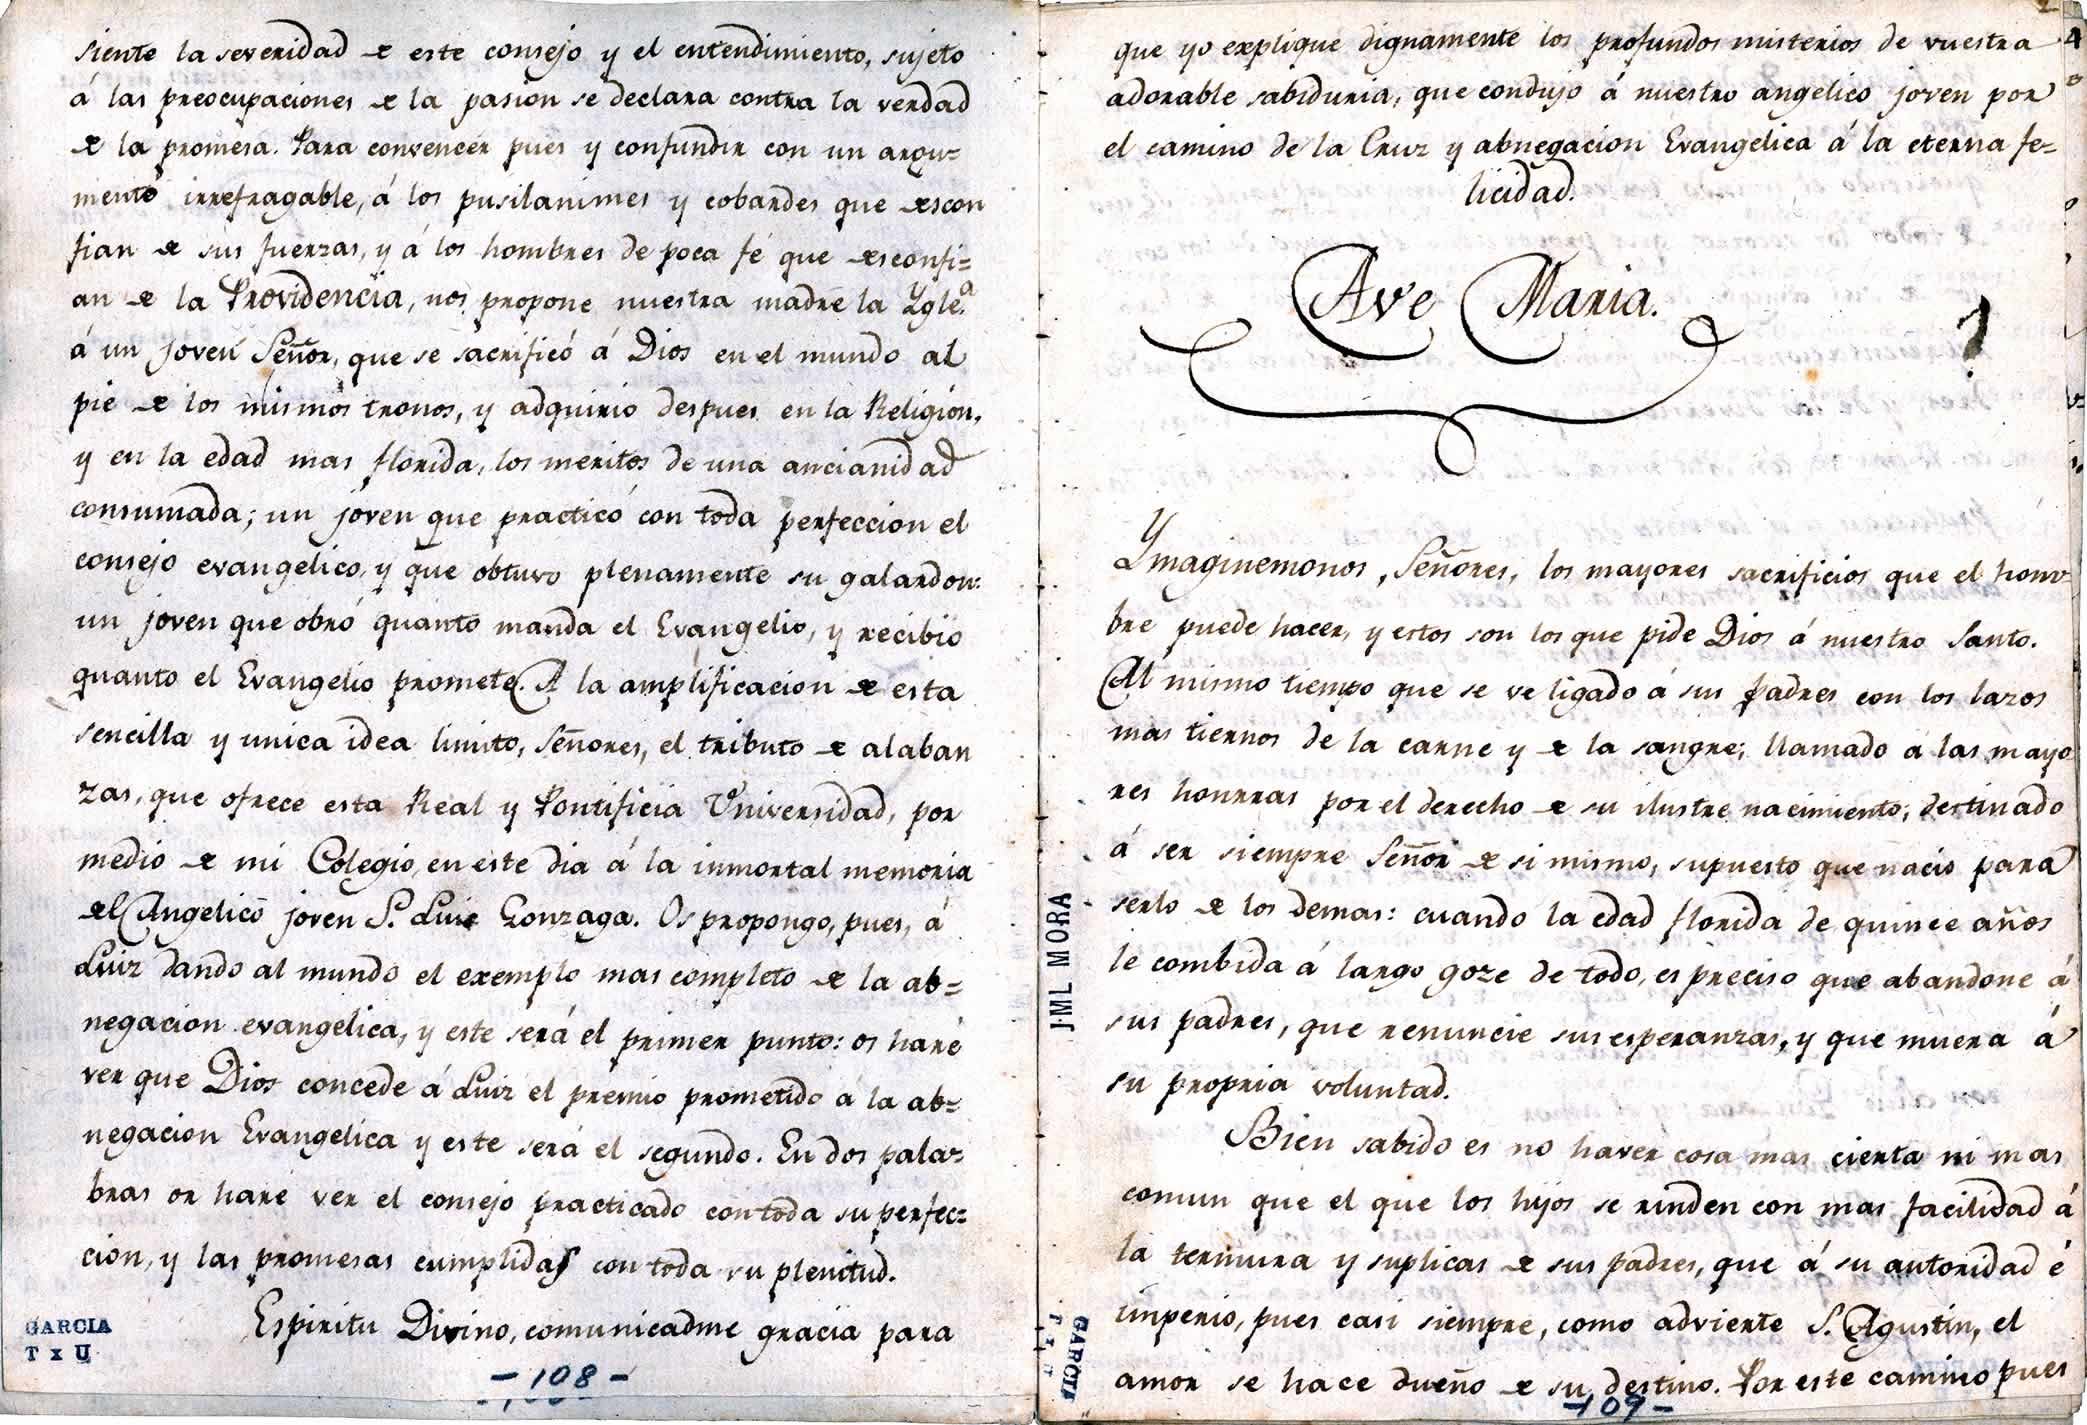 siente la severidad de este consejo y el entendimiento, sujeto
á las preocupaciones de la pasion se declara contra la verdad
de la promesa. Para convencer pues y confundir con un argu=
mento irrefragable, á los pusilanimes y cobardes que descon
fian de sus fuerzas, y á los hombres de poca fé que desconfi=
an de la Providencia, nos propone nuestra madre la Ygle.ª
á un joven Señor, que se sacrificó á Dios en el mundo al
pie de los mismos tronos, y adquirio despues en la Religion,
y en la edad mas florida, los meritos de una ancianidad
consumada; un joven que practicó con toda perfeccion el
consejo evangelico, y que obtuvo plenamente su galardon:
un joven que obró quanto manda el Evangelio, y recibio
quanto el Evangelio promete. A la amplificacion de esta
sencilla y unica idea limito, Señores, el tributo de alaban
zas, que ofrece esta Real y Pontificia Universidad, por
medio de mi Colegio, en este dia á la inmortal memoria
del Angelico joven S. Luis Gonzaga. Os propongo, pues, á
Luiz dando al mundo el exemplo mas completo de la ab=
negacion evangelica, y este será el primer punto: os haré
ver que Dios concede á Luiz el premio prometido a la ab=
negacion Evangelica y este será el segundo. En dos pala=
bras os haré ver el consejo practicado con toda su perfec=
cion, y las promesas cumplidas con toda su plenitud.
Espiritu Divino, comunicadme gracia para
GARCIA
T x U
-108-
que yo explique dignamente los profundos misterios de vuestra
adorable sabiduria, que condujo á nuestro angelico joven por
el camino de la Cruz y abnegacion Evangelica á la eterna fe=
licidad.
Ave Maria.
Ymaginemonos, Señores, los mayores sacrificios que el hom=
bre puede hacer, y estos son los que pide Dios á nuestro Santo.
Al mismo tiempo que se ve ligado á sus padres con los lazos
mas tiernos de la carne y de la sangre; llamado a las mayo
res honrras por el derecho de su ilustre nacimiento; destinado
á ser siempre Señor de si mismo, supuesto que nacio para
serlo de los demas: cuando la edad florida de quince años
le combida á largo goze de todo, es preciso que abandone á
sus padres, que renuncie sus esperanzas, y que muera á
su propria voluntad.
Bien sabido es no haver cosa mas cierta ni mas
comun que el que los hijos se rinden con mas facilidad á
la ternura y suplicas de sus padres, que á su autoridad é
imperio, pues casi siempre, como advierte S. Agustin, el
amor se hace dueño de su destino. Por este camino pues
-109-
J·ML MORA
GARCIA
T x U